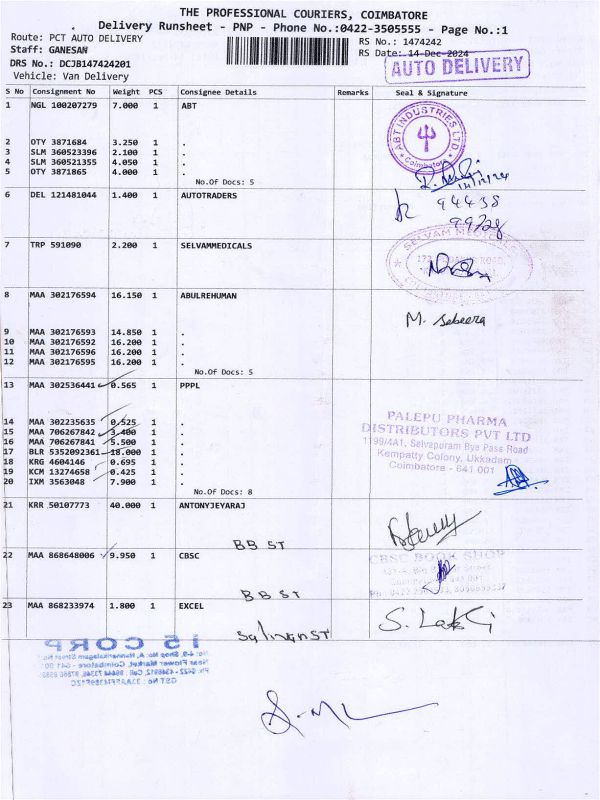 THE PROFESSIONAL COURIERS, COIMBATORE
Delivery Runsheet - PNP - Phone No.:0422-3505555 - Page No.:1
Route: PCT AUTO DELIVERY
RS No.: 1474242
Staff: GANESAN
RS Date: 14-Dec-2024
DRS No.: DCJB147424201
AUTO DELIVERY
Vehicle: Van Delivery
S No Consignment No Weight PCS Consignee Details Remarks Seal & Signature
1 NGL 100207279 7.000 1 ABT
ABT INDUSTRIES LTD
Coimbatore
2 OTY 3871684 3.250 1 .
3 SLM 360523396 2.100 1 .
4 SLM 360521355 4.050 1 .
5 OTY 3871865 4.000 1 .
No.Of Docs: 5
14/12/24
6 DEL 121481044 1.400 1 AUTOTRADERS
94438
99728
7 TRP 591090 2.200 1 SELVAMMEDICALS
SELVAM
8 MAA 302176594 16.150 1 ABULREHUMAN
M. Sabeera
9 MAA 302176593 14.850 1 .
10 MAA 302176592 16.200 1 .
11 MAA 302176596 16.200 1 .
12 MAA 302176595 16.200 1 .
No.Of Docs: 5
13 MAA 302536441 0.565 1 PPPL
14 MAA 302235635 0.525 1 .
15 MAA 706267842 3.400 1 .
16 MAA 706267841 5.500 1 .
17 BLR 5352092361 18.000 1 .
18 KRG 4604146 0.695 1 .
19 KCM 13274658 0.425 1 .
20 IXM 3563048 7.900 1 .
No.Of Docs: 8
PALEPU PHARMA
DISTRIBUTORS PVT LTD
1199/4A1, Selvapuram Bye Pass Road
Kempatty Colony, Ukkadam
Coimbatore - 641 001
21 KRR 50107773 40.000 1 ANTONYJEYARAJ
BB ST
22 MAA 868648006 9.950 1 CBSC
CBSC BOOK SHOP
BB ST
23 MAA 868233974 1.800 1 EXCEL
S. Lakki
15 CORP